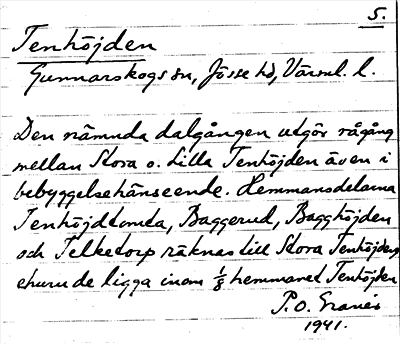 5.
Tenhöjden
Gunnarskogs sn, Jösse hd, Värml. l.
Den nämnda dalgången utgör rågång
mellan Stora o. Lilla Tenhöjden även i
bebyggelsehänseende. Hemmansdelarna
Tenhöjdtomta, Baggerud, Bagghöjden
och Felketorp räknas till Stora Tenhöjden,
ehuru de ligga inom 1/8 hemmanet Tenhöjden
P.O. Granér
1941.